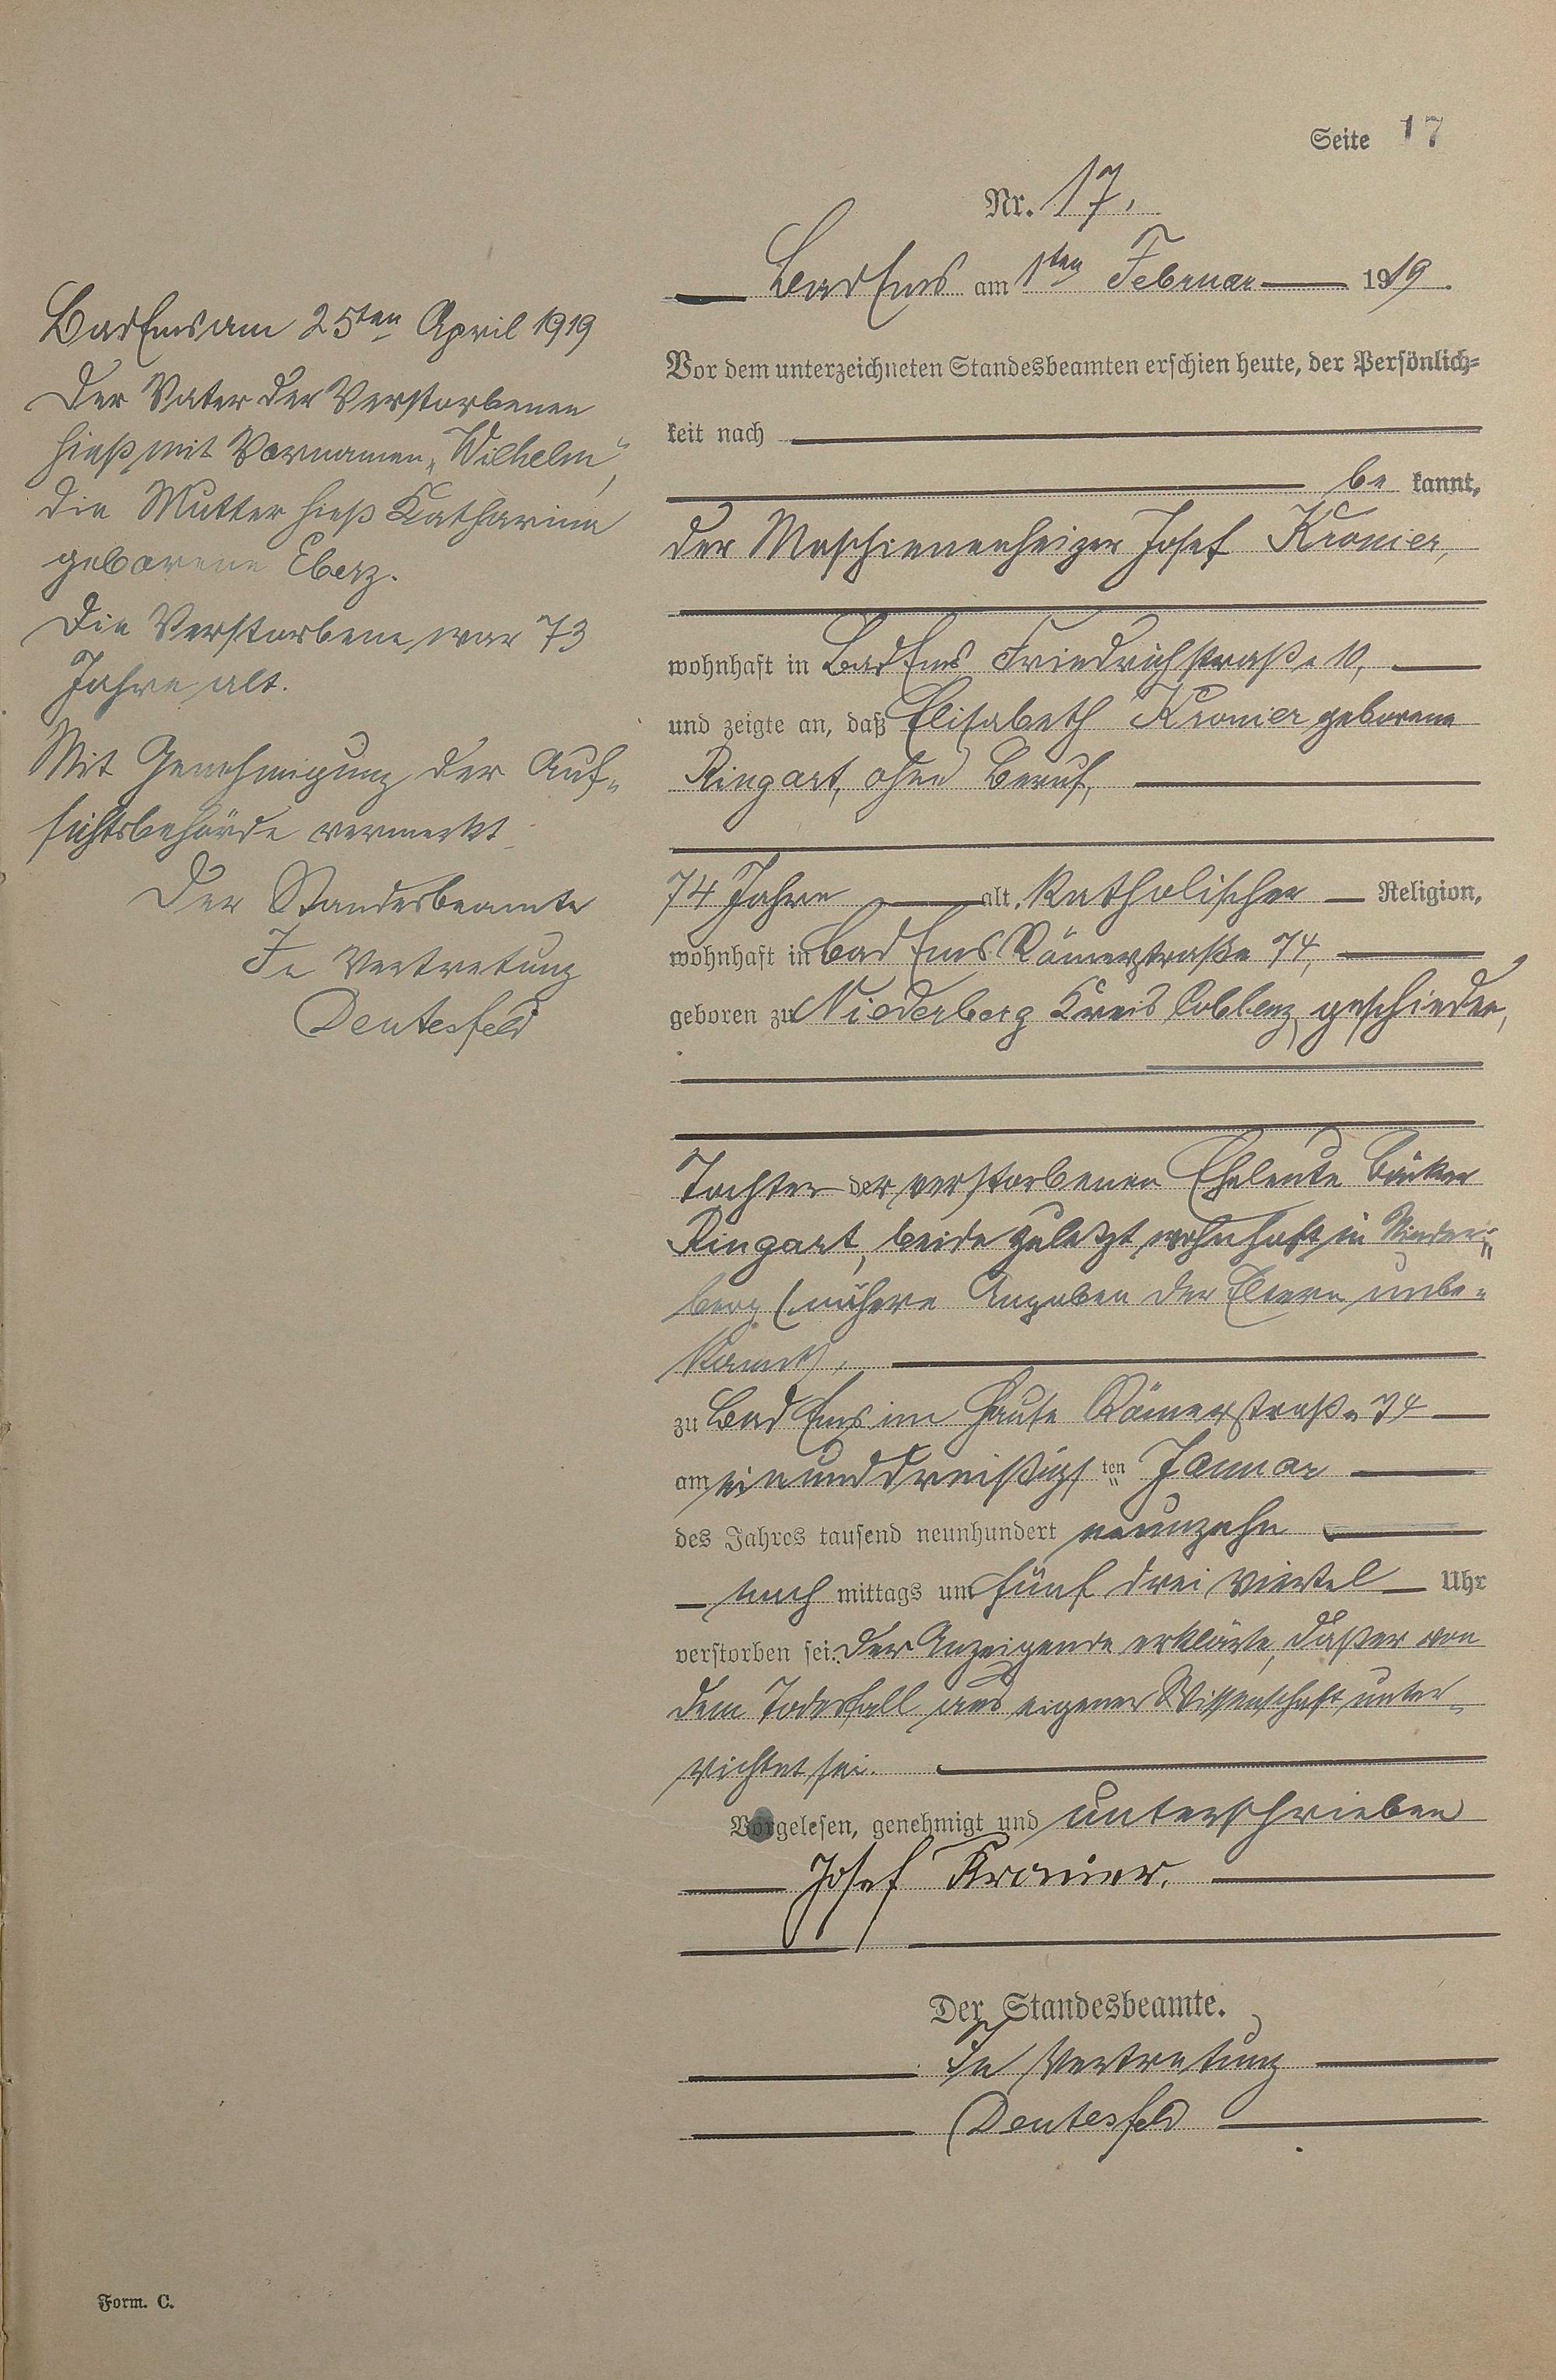 Seite 17
Nr. 17.
Bad Ems am 1ten Februar 1919.
Vor dem unterzeichneten Standesbeamten erschien heute, der Persönlich-
keit nach
be kannt,
der Maschienenheizer Josef Kronier,
wohnhaft in Bad Ems Friedrichstraße 10,
und zeigte an, daß Elisabeth Kronier geborene
Ringart, ohne Beruf,
74 Jahre alt, katholischer Religion,
wohnhaft in Bad Ems Römerstraße 74,
geboren zu Niederberg Kreis Coblenz, geschieden,
Tochter der verstorbenen Eheleute Bäcker
Ringart, beide zuletzt wohnhaft in Nieder-
berg (nähere Angaben der Eltern unbe-
kannt).
zu Bad Ems im Hause Römerstraße 74
am einunddreißigsten Januar
des Jahres tausend neunhundert neunzehn
nach mittags um fünf drei viertel Uhr
verstorben sei. Der Anzeigende erklärte, daß er von
dem Todesfall aus eigener Wissenschaft unter-
richtet sei.
Vorgelesen, genehmigt und unterschrieben
Josef Kronier.
Der Standesbeamte.
In Vertretung
Deutesfeld
Bad Ems am 25ten April 1919
Der Vater der Verstorbenen
hieß mit Vornamen „Wilhelm",
die Mutter hieß Katharina
geborene Eberz.
Die Verstorbene war 73
Jahre alt.
Mit Genehmigung der Auf-
sichtsbehörde vermerkt
Der Standesbeamte
In Vertretung
Deutesfeld
Form. C.